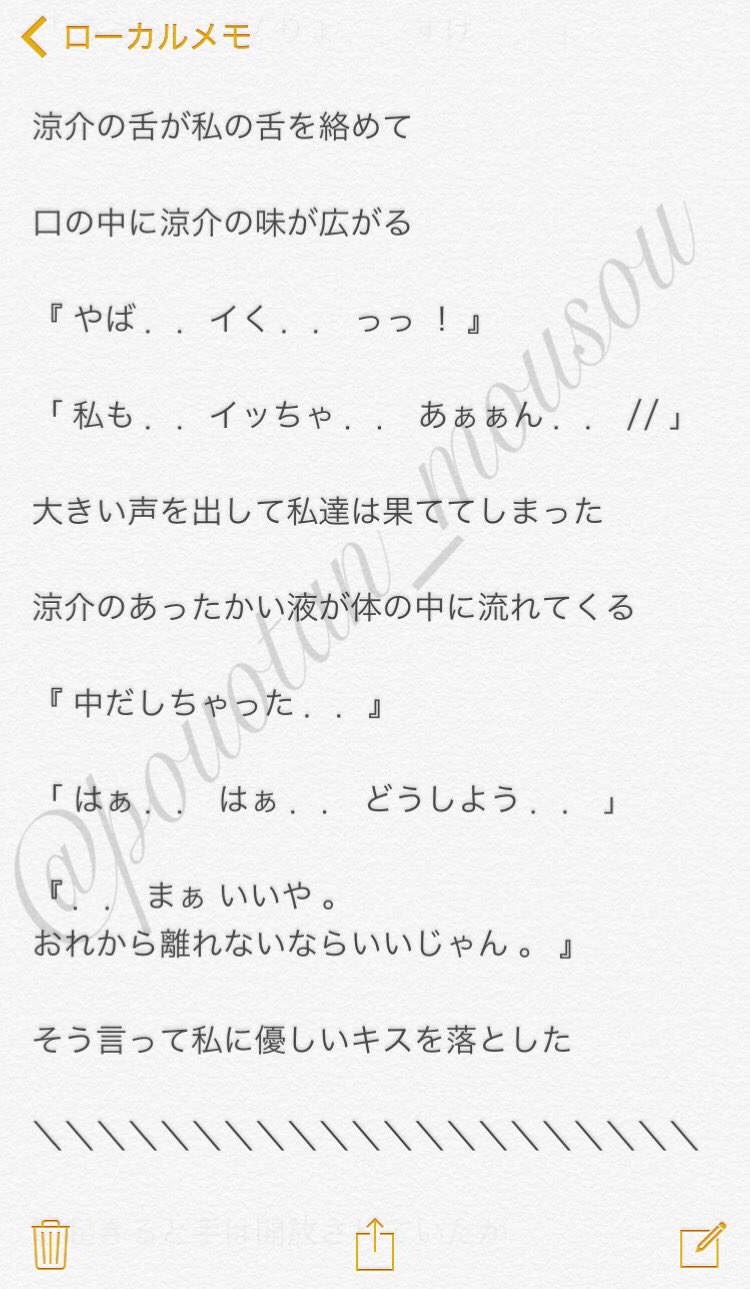 ローカルメモ
涼介の舌が私の舌を絡めて
口の中に涼介の味が広がる
『 やば . . イく . . っっ ！』
「 私も . . イッちゃ . . あぁぁん . . // 」
大きい声を出して私達は果ててしまった
涼介のあったかい液が体の中に流れてくる
『 中だしちゃった . . 』
「 はぁ . . はぁ . . どうしよう . . 」
『 . . まぁ いいや 。
おれから離れないならいいじゃん 。 』
そう言って私に優しいキスを落とした
\\\\\\\\\\\\\\\\\\\\\
@pouotan_mousou